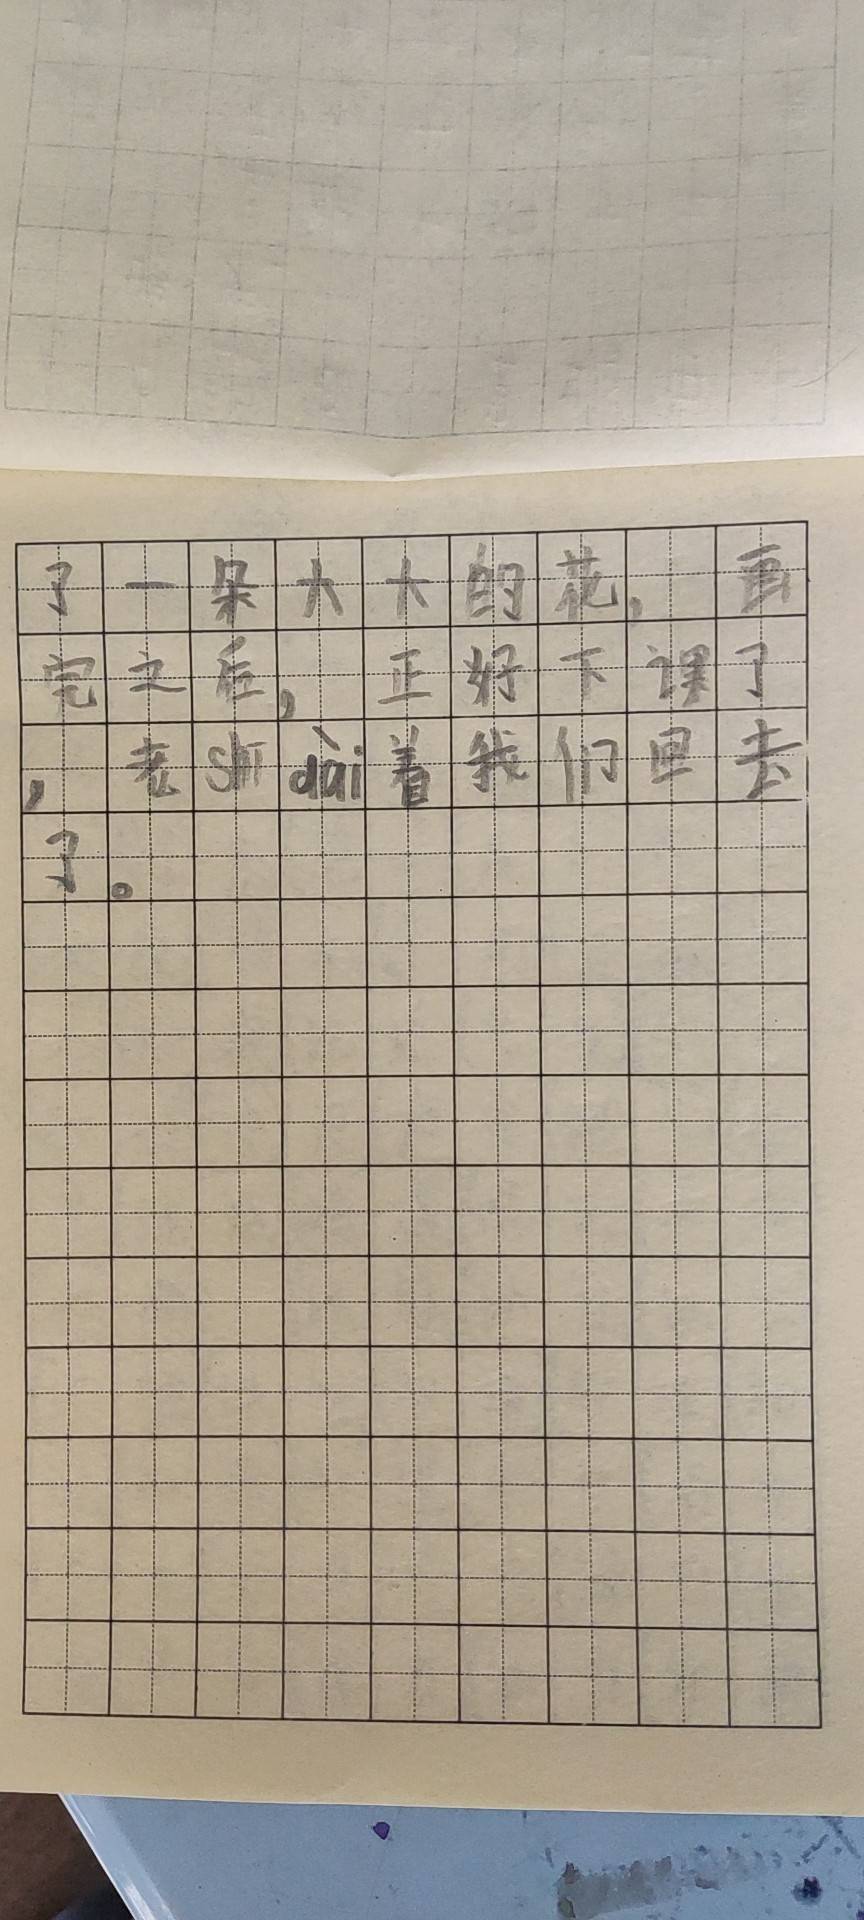 了一朵大大的花，画
完之后，正好下课了
，老shīdài着我们回去
了。